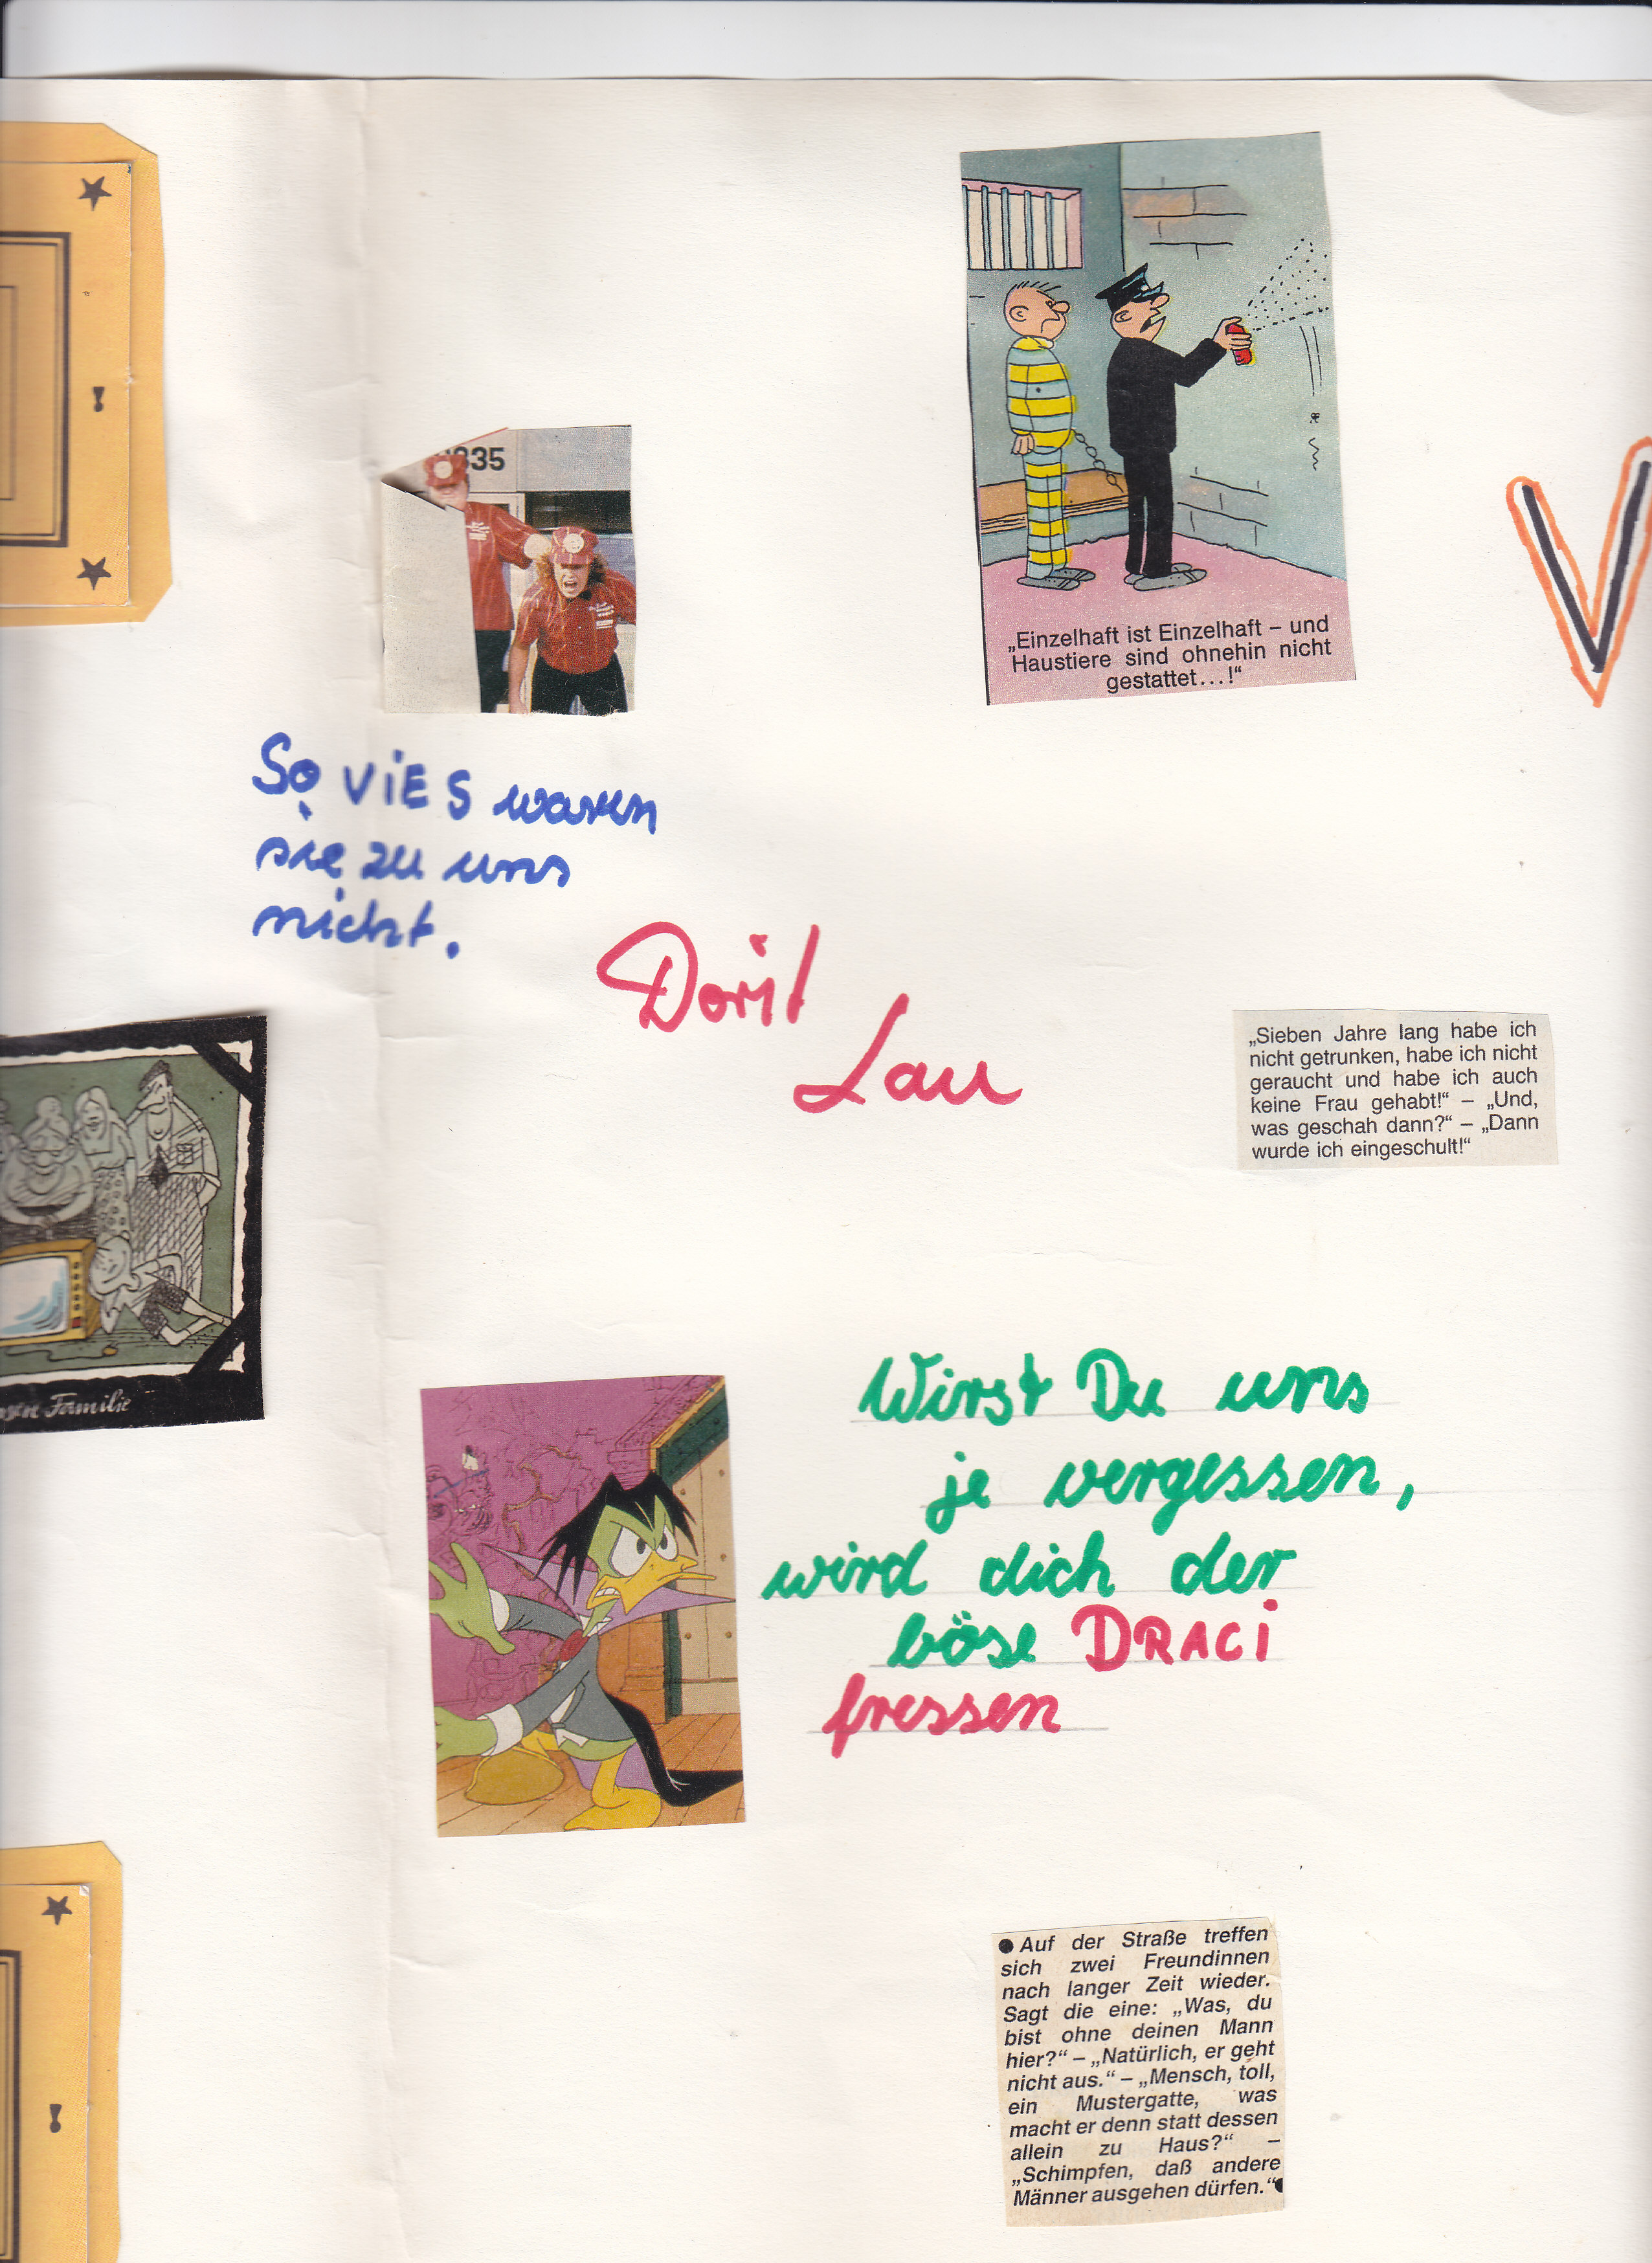 335
„Einzelhaft ist Einzelhaft – und
Haustiere sind ohnehin nicht
gestattet...!“
V
So ViES waren
sie zu uns
nicht.
Dorit
Lau
„Sieben Jahre lang habe ich
nicht getrunken, habe ich nicht
geraucht und habe ich auch
keine Frau gehabt!“ – „Und,
was geschah dann?“ – „Dann
wurde ich eingeschult!“
Familie
Wirst Du uns
je vergessen,
wird dich der
böse DRACi
fressen
● Auf der Straße treffen
sich zwei Freundinnen
nach langer Zeit wieder.
Sagt die eine: „Was, du
bist ohne deinen Mann
hier?“ – „Natürlich, er geht
nicht aus.“ – „Mensch, toll,
ein Mustergatte, was
macht er denn statt dessen
allein zu Haus?“ –
„Schimpfen, daß andere
Männer ausgehen dürfen.“
!
!